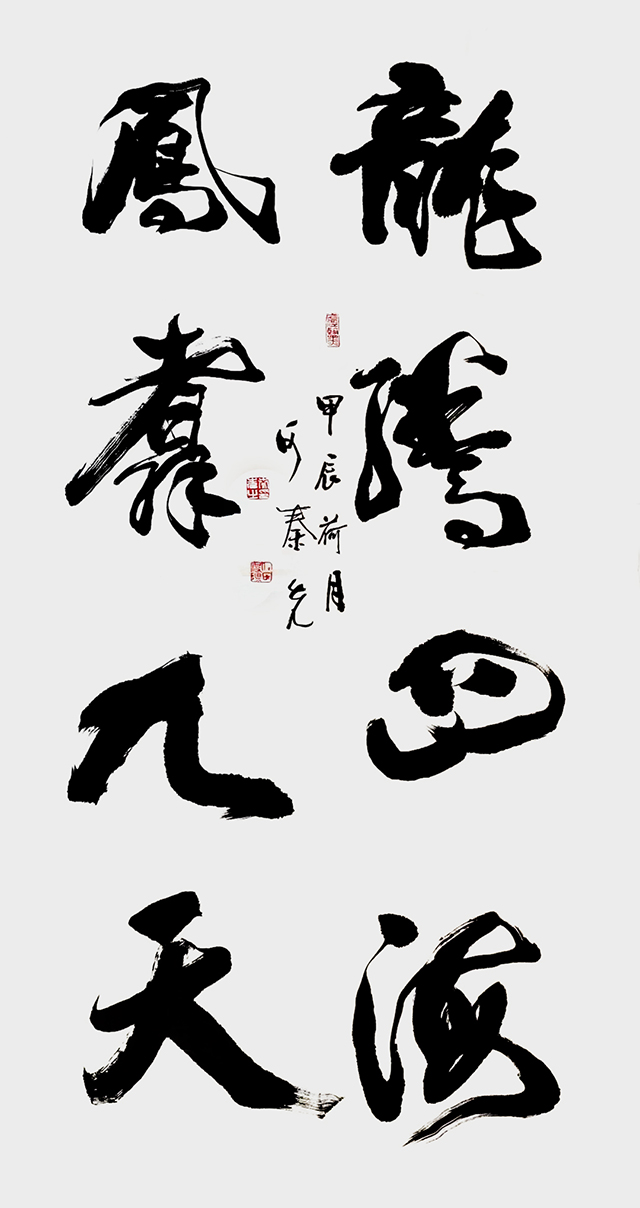 龍騰四海
鳳翥九天
甲辰荷月
秦